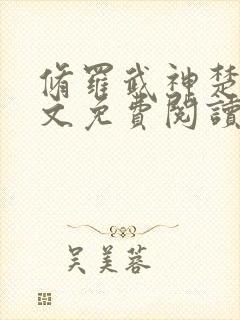 脩羅武神楚
文免費閱讀
吴美蓉